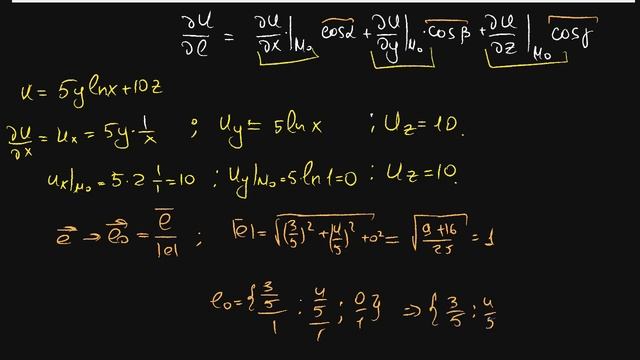 ∂u/∂e = ∂u/∂x·|M₀ cosα + ∂u/∂y|M₀ · cosβ + ∂u/∂z|M₀ cosγ
u = 5y lnx + 10z
∂u/∂x = uₓ = 5y · 1/x ; u_y = 5 lnx ; u_z = 10.
uₓ|M₀ = 5·2 1/1 = 10 ; u_y|M₀ = 5 ln1 = 0 ; u_z = 10.
e⃗ → e⃗₀ = e̅/|e| ; |e| = √((3/5)² + (4/5)² + 0²) = √((9+16)/25) = 1
e₀ = {(3/5)/1 ; (4/5)/1 ; 0/1} ⇒ {3/5 ; 4/5